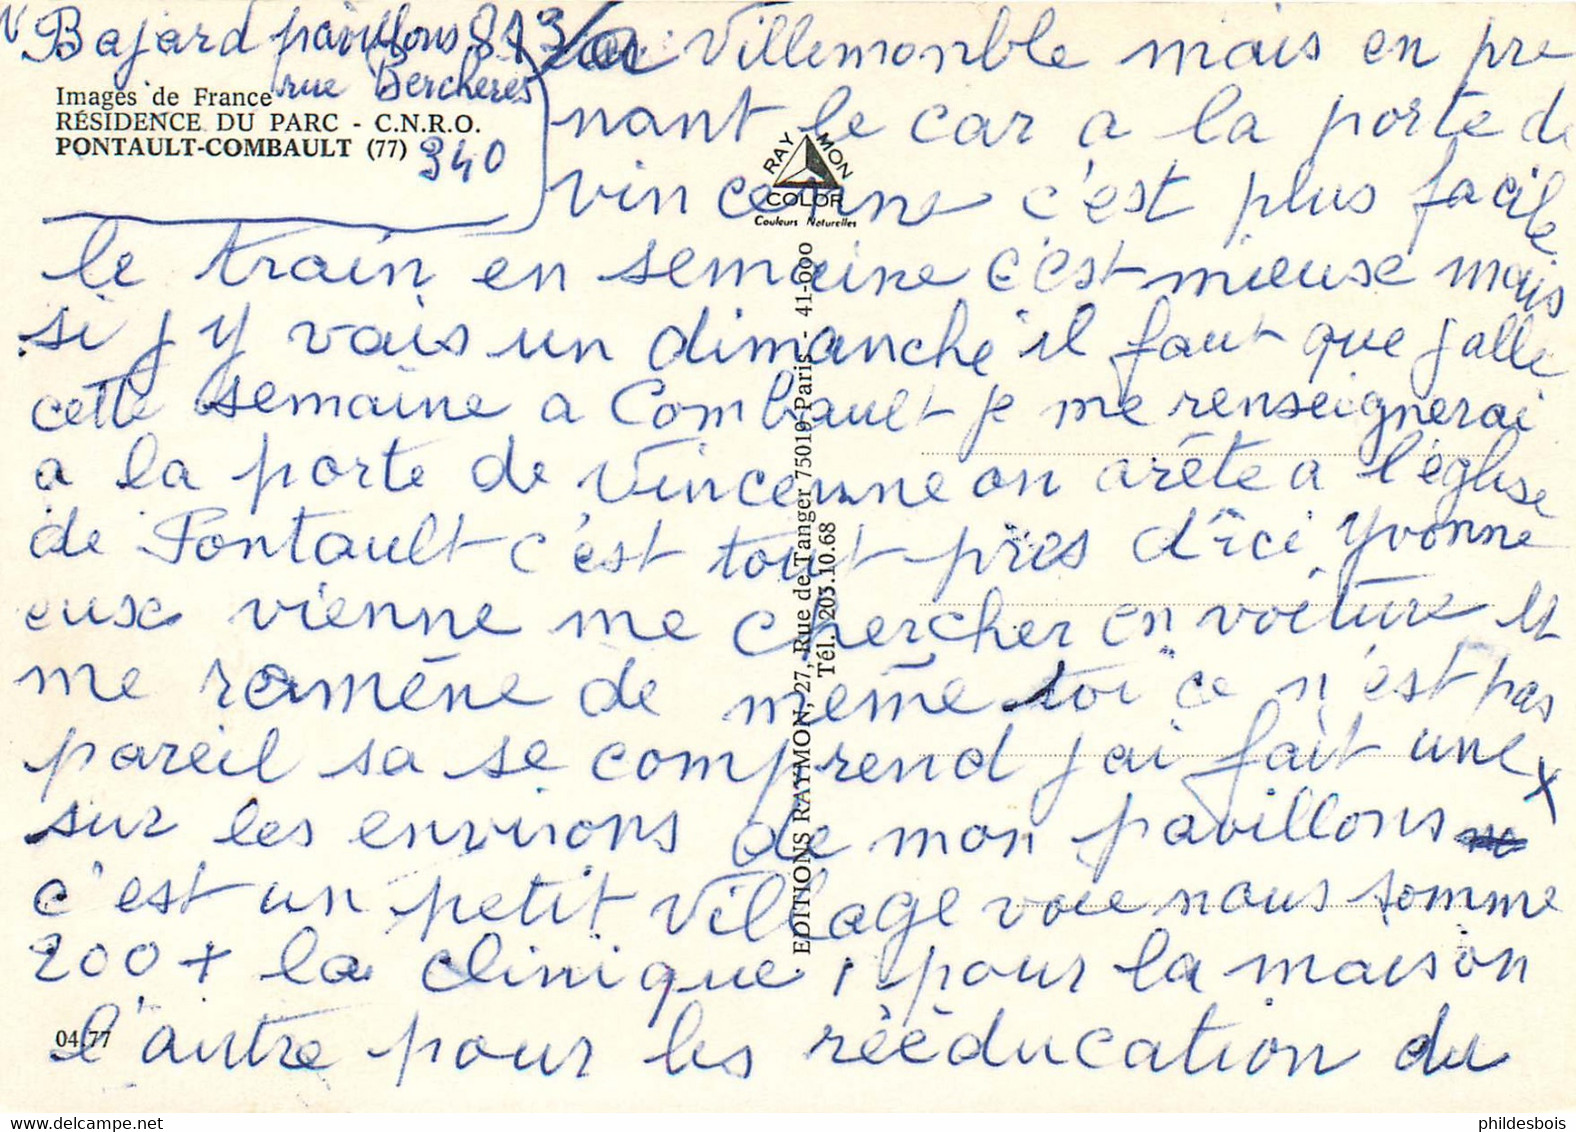 Bajard pavillons 813
rue Bercheres
340
Images de France
RÉSIDENCE DU PARC - C.N.R.O.
PONTAULT-COMBAULT (77)
Villemonble mais en pre
nant le car a la porte de
vincenne c'est plus facile
le train en semaine c'est mieuse mais
si j y vais un dimanche il faut que jalle
cette semaine a Combault je me renseignerai
a la porte de Vincenne on arête a l'église
de Pontault c'est tout près d'ici Yvonne
euse vienne me chercher en voiture et
me ramène de même toi ce n'est pas
pareil sa se comprend j'ai fait une x
sur les environs de mon pavillons
c'est un petit village voie nous somme
200 + la clinique 1 pour la maison
l'autre pour les rééducation du
RAYMON
COLOR
Couleurs Naturelles
EDITIONS RAYMON, 27, Rue de Tanger 75019 Paris - 41-000
Tél. 203.10.68
04/77
phildesbois